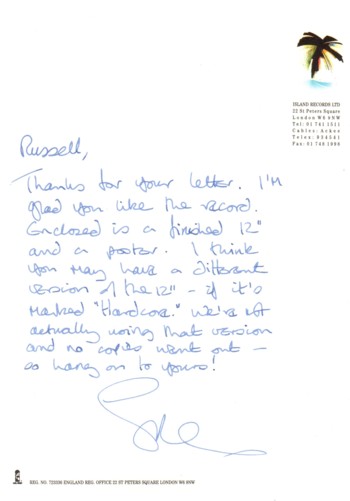 ISLAND RECORDS LTD
22 St Peters Square
London W6 9NW
Tel: 01 741 1511
Cables: Ackee
Telex: 934541
Fax: 01 748 1998
Russell,
Thanks for your letter. I'm
glad you like the record.
Enclosed is a finished 12"
and a poster. I think
you may have a different
version of the 12" - if it's
marked "Hardcore." We're not
actually using that version
and no copies went out -
so hang on to yours!
REG. NO. 723336 ENGLAND REG. OFFICE 22 ST PETERS SQUARE LONDON W6 9NW